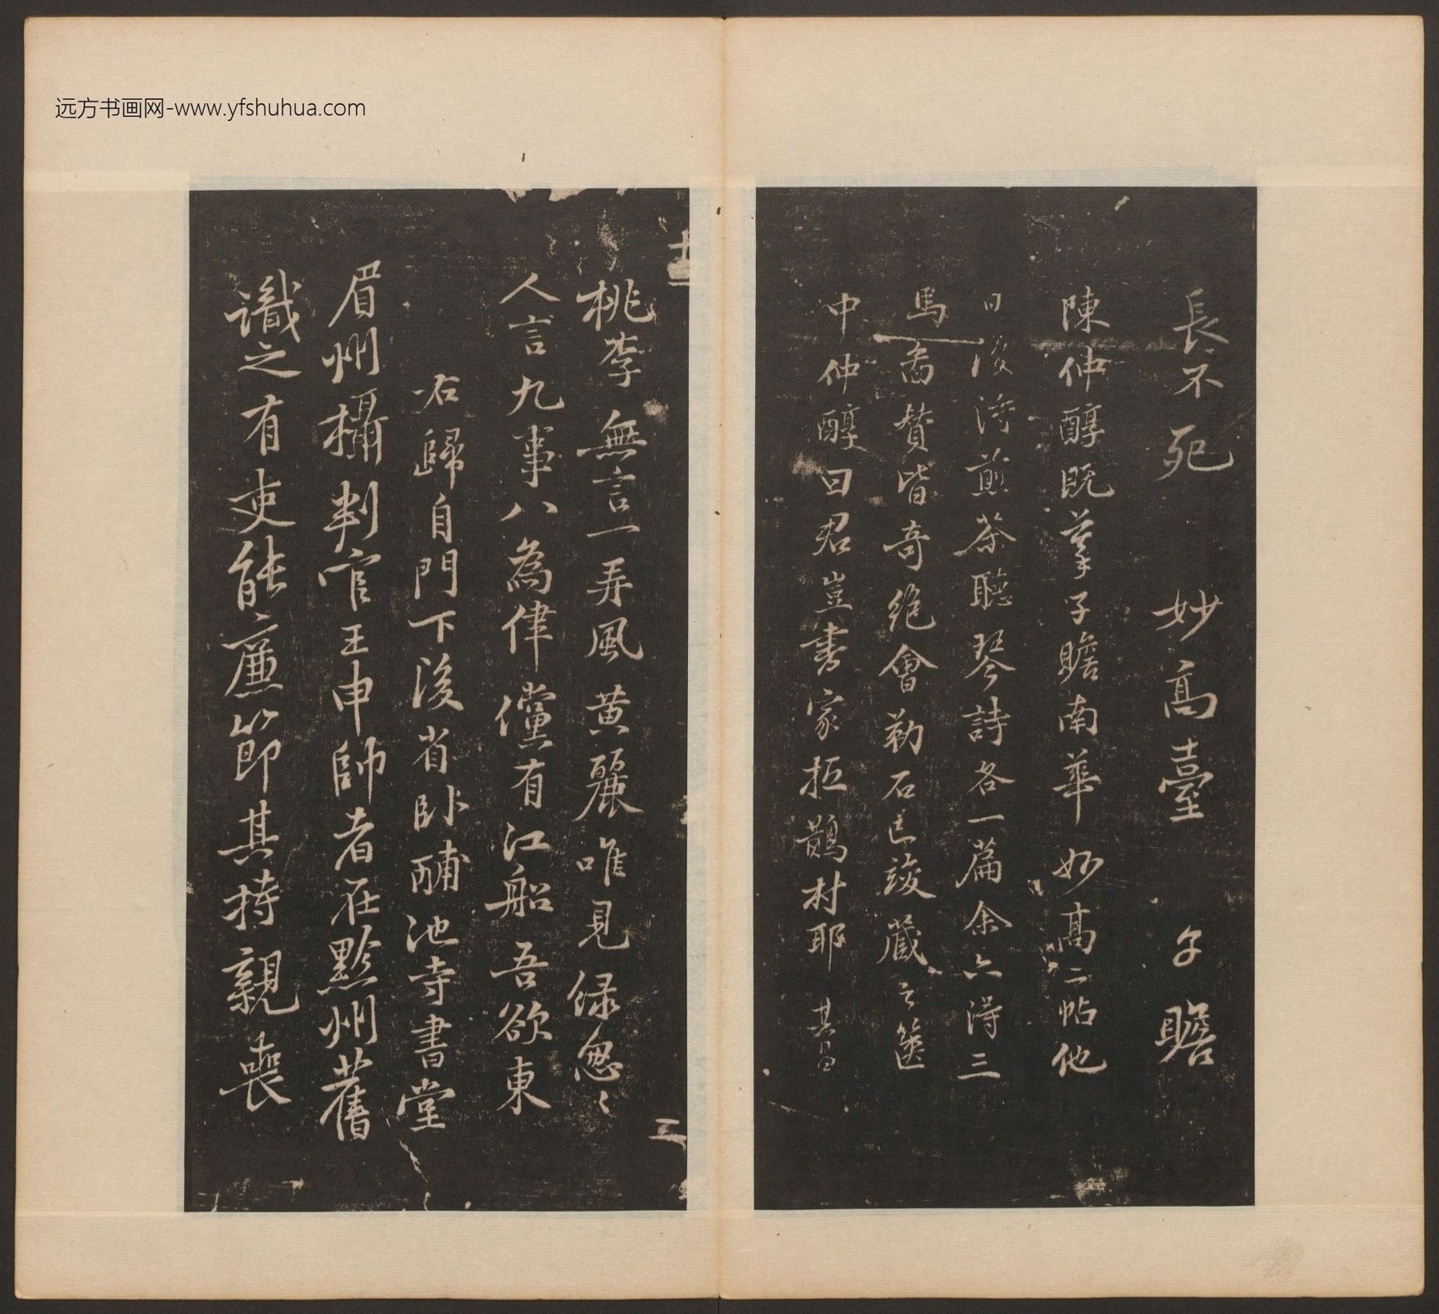 远方书画网-www.yfshuhua.com
長不死 妙高臺 子瞻
陳仲醇既摹子瞻南華妙高二帖他
日復得煎茶聽琴詩各一篇余亦得三
馬圖贊皆奇絶會勒石已竣藏之篋
中仲醇曰君豈書家拒鵲村耶 其昌
桃李無言一弄風黄麗唯見緑怱〻
人言九事八為律儻有江船吾欲東
右歸自門下後省卧酺池寺書堂
眉州攝判官王申帥者在黔州舊
識之有吏能廉節其持親喪